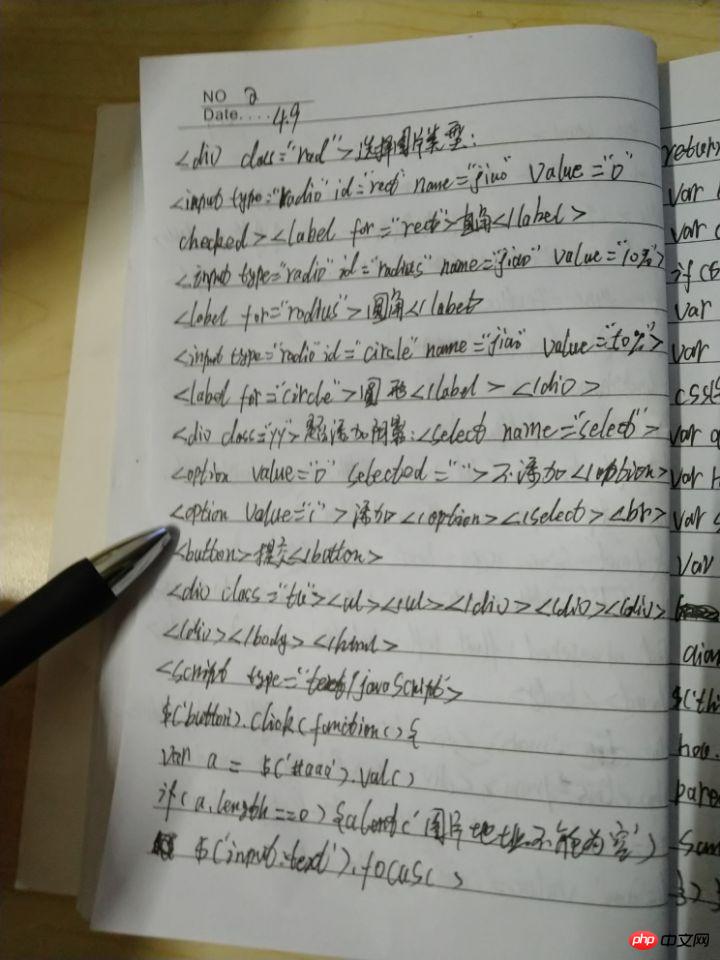 NO 2
Date.... 4.9
<div class="rad">选择图片类型:
<input type="radio" id="rect" name="jiao" value="0"
checked><label for="rect">直角</label>
<input type="radio" id="radius" name="jiao" value="10%">
<label for="radius">圆角</label>
<input type="radio" id="circle" name="jiao" value="50%">
<label for="circle">圆形</label></div>
<div class="yy">是否添加阴影:<select name="select">
<option value="0" selected="">不添加</option>
<option value="1">添加</option></select><br>
<button>提交</button>
<div class="tu"><ul></ul></div></div></div>
</div></body></html>
<script type="text/javascript">
$('button').click(function(){
var a = $('#aaa').val()
if(a.length==0){alert('图片地址不能为空')
$('input:text').focus()
return
var
var
if
var
var
var
var
var
var
$('thi
php 中文网